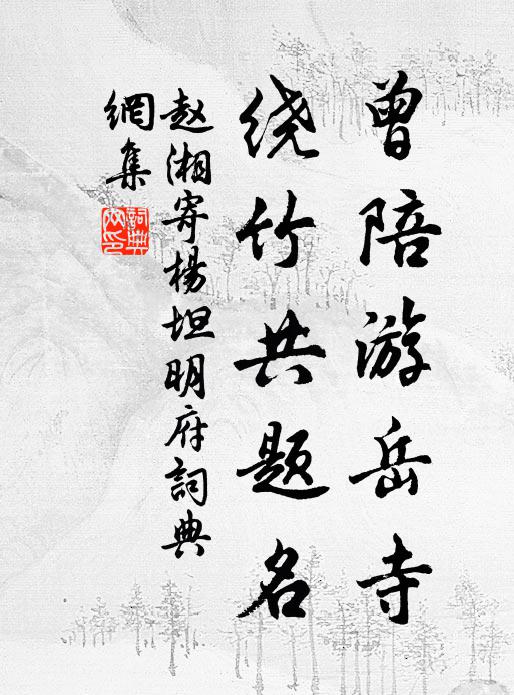 曾陪游岳寺
绕竹共题名
赵湘寄楊坦明府詞典
網集
詞典
网印